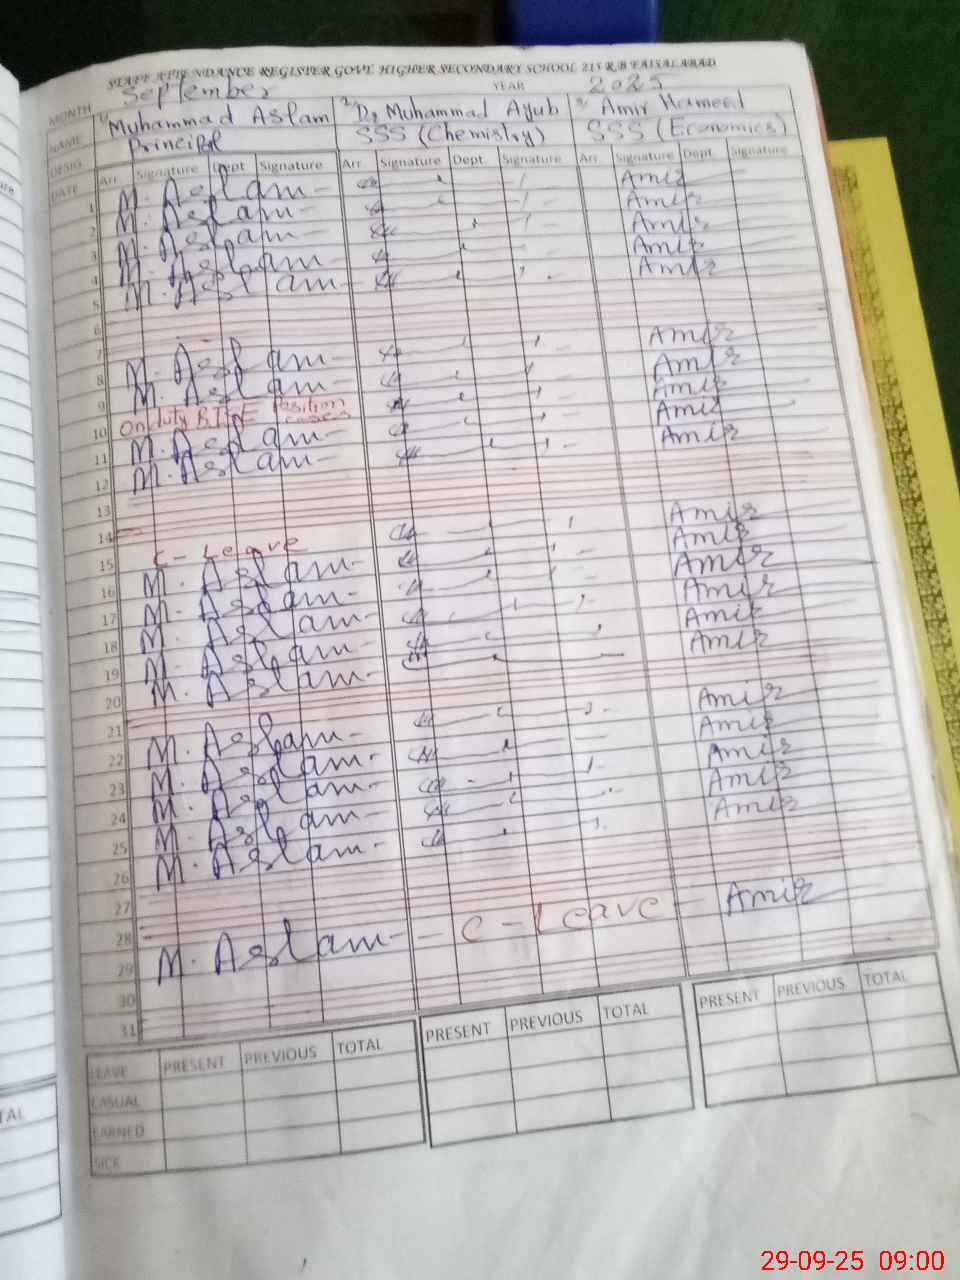 STAFF ATTENDANCE REGISTER GOVT. HIGHER SECONDARY SCHOOL 215 R.B FAISALABAD
MONTH September YEAR 2025
NAME 1/ Muhammad Aslam 2/ Dr Muhammad Ayub 3/ Amir Hameed
DESIG Principal SSS (Chemistry) SSS (Economics)
DATE Arr. Signature Dept Signature Arr. Signature Dept. Signature Arr. Signature Dept. Signature
1 M. Aslam Amir
2 M. Aslam Amir
3 M. Aslam Amir
4 M. Aslam Amir
5 M. Aslam Amir
6
7
8 M. Aslam Amir
9 M. Aslam Amir
10 On duty Position cases Amir
11 M. Aslam Amir
12 M. Aslam Amir
13
14
15 C - Leave Amir
16 M. Aslam Amir
17 M. Aslam Amir
18 M. Aslam Amir
19 M. Aslam Amir
20 M. Aslam Amir
21
22 M. Aslam Amir
23 M. Aslam Amir
24 M. Aslam Amir
25 M. Aslam Amir
26 M. Aslam Amir
27
28
29 M. Aslam C - Leave Amir
30
31
PRESENT PREVIOUS TOTAL PRESENT PREVIOUS TOTAL PRESENT PREVIOUS TOTAL
LEAVE
CASUAL
EARNED
SICK
TAL
29-09-25 09:00